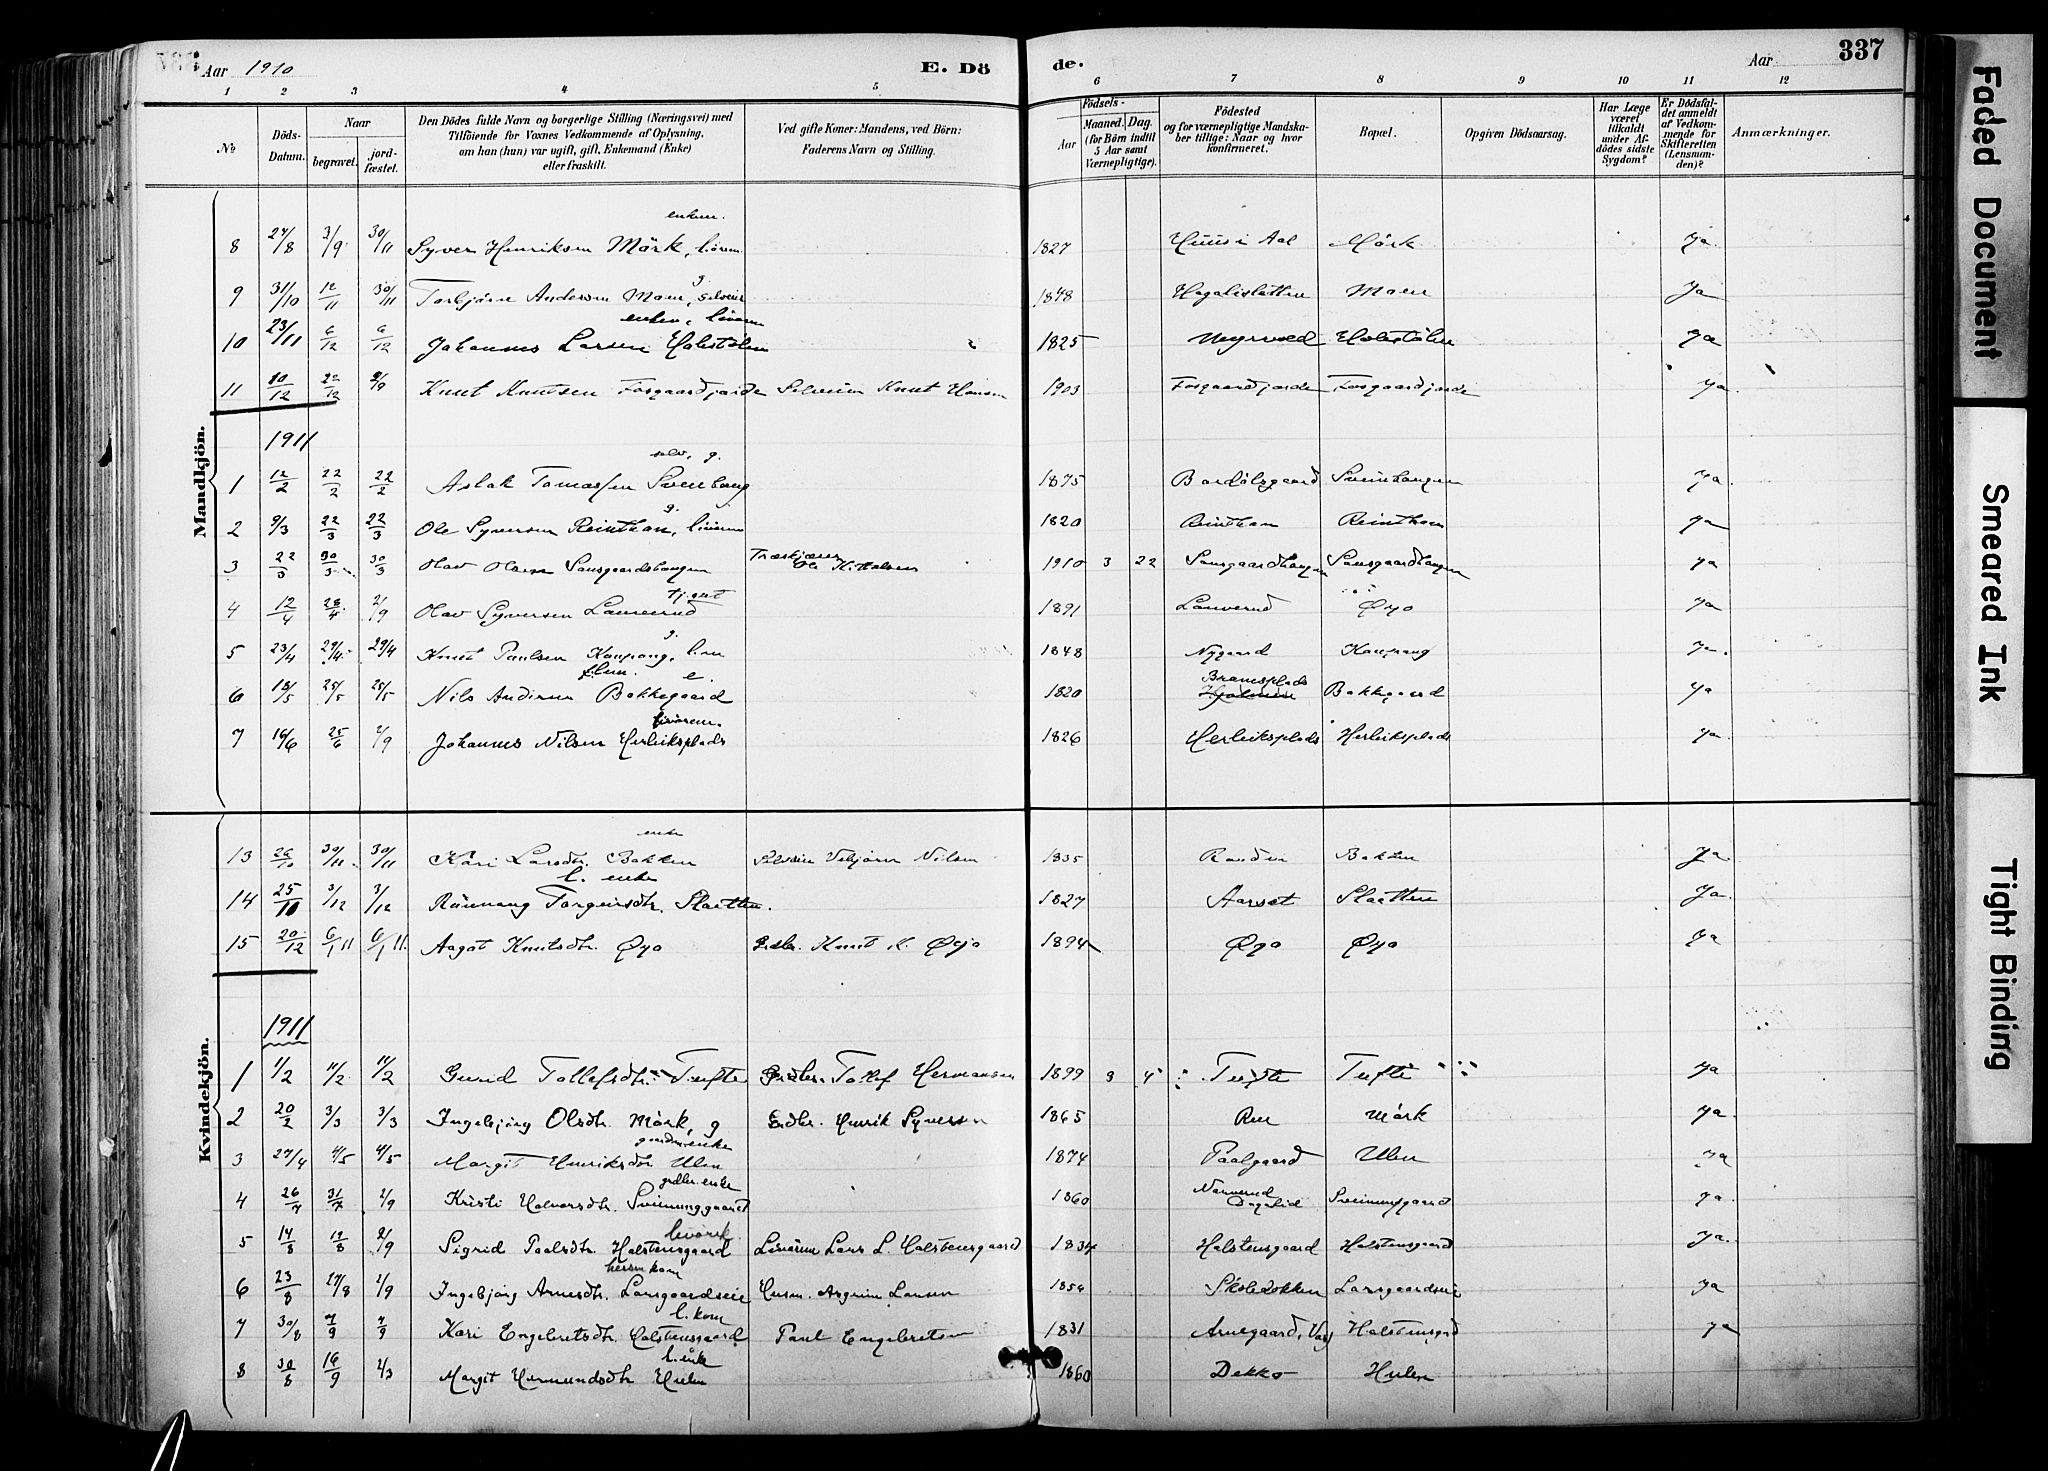 Aar 1910 E. Dö de. Aar 337
1 2 3 4 5 6 7 8 9 10 11 12
No Döds-Datum. Naar begravet. jordfæstet. Den Dödes fulde Navn og borgerlige Stilling (Næringsvei) med Tilföiende for Voxnes Vedkommende af Oplysning, om han (hun) var ugift, gift, Enkemand (Enke) eller fraskilt. Ved gifte Koner: Mandens, ved Börn: Faderens Navn og Stilling. Födsels- Aar Maaned. Dag. (for Börn indtil 5 Aar samt Værnepligtige). Födested og for værnepligtige Mandskaber tillige: Naar og hvor konfirmeret. Bopæl. Opgiven Dödsaarsag. Har Læge været tilkaldt under Afdödes sidste Sygdom? Er Dödsfaldet anmeldt af Vedkommende for Skifteretten (Lensmanden)? Anmærkninger.
Mandkjön.
enkem.
8 27/8 3/9 30/11 Syver Henriksen Mörk, 1827 Huus i Aal Mörk Ja
g.
9 31/10 12/11 30/11 Torbjörn Andersen Moen, selveier 1848 Hagalisletten Moen Ja
10 23/11 6/12 6/12 Johannes Larsen 1825 Myrvold Ja
11 10/12 22/12 2/9 Knut Knutsen Fosgaardjorde Selveier Knut Hansen 1903 Fosgaardjorde Fosgaardjorde Ja
1911
selv. g.
1 12/2 22/2 22/2 Aslak Tomassen Sveinhaug 1875 Bardölsgaard Sveinhaugen Ja
g.
2 9/3 22/3 22/3 Ole Syversen Reinthan, 1820 Reinthan Reinthan Ja
3 22/3 30/3 30/3 Olav Olsen Sansgaardshaugen 1910 3 22 Sansgaardhaugen Sansgaardhaugen Ja
4 12/4 28/4 2/9 Olav Syversen Lauverud 1891 Lauverud Öyo Ja
g.
5 23/4 29/4 29/4 Knut Paulsen Kaupang, 1848 Nygaard Kaupang Ja.
e.
6 18/5 25/5 25/5 Nils Andersen Bakkegaard 1820 Bramsplads Bakkegaard Ja
7 16/6 25/6 2/9 Johannes Nilsen Herleiksplads 1826 Herleiksplads Herleiksplads Ja
Kvindekjön.
enke
13 26/10 30/11 30/11 Kari Larsdtr. Bakken Selveier Vebjörn Nilsen 1835 Bakken Ja
l. enke
14 25/10 3/12 3/12 Rannang Torgeirsdtr. Slaatten. 1827 Aarset Slaatten Ja.
15 20/12 6/1 11 6/1 11. Aagot Knutsdtr. Öyo Grdbr. Knut K. Öyo 1894 Öyo Öyo Ja
1911
1 1/2 11/2 11/2 Gunid Tollefsdtr. Tufte Grdbr. Tollef Hermansen 1899 3 4 Tufte Tufte Ja
2 20/2 3/3 3/3 Ingebjörg Olsdtr. Mörk, g Grdbr. Henrik Syversen 1865 Mörk Ja
gaardm. enke
3 27/4 4/5 4/5 Margit Henriksdtr Ulen 1874 Paalgaard Ulen Ja
grdbr. enke
4 26/7 31/7 2/9 Kristi Halvorsdtr. Sveinunggaard 1860 Dagalid Sveinunggaard Ja.
5 14/8 19/8 2/9 Sigrid Paalsdtr. Halstensgaard Lars L. Halstensgaard 1834 Halstensgaard Halstensgaard Ja.
6 23/8 27/8 2/9 Ingebjörg Arnesdtr. Larsgaardseie Husm. Asgrim Larsen 1854 Skoledokken Larsgaardseie Ja
l. kone
7 30/8 7/9 7/9 Kari Engebretsdtr. Halstensgaard Paul Engebretsen 1831 Arnegaard, Halstensgrd Ja
l. enke
8 30/8 16/9 2/3 Margit Hermundsdtr Hulen 1860 Dekko Hulen
Faded Document
Smeared Ink
Tight Binding